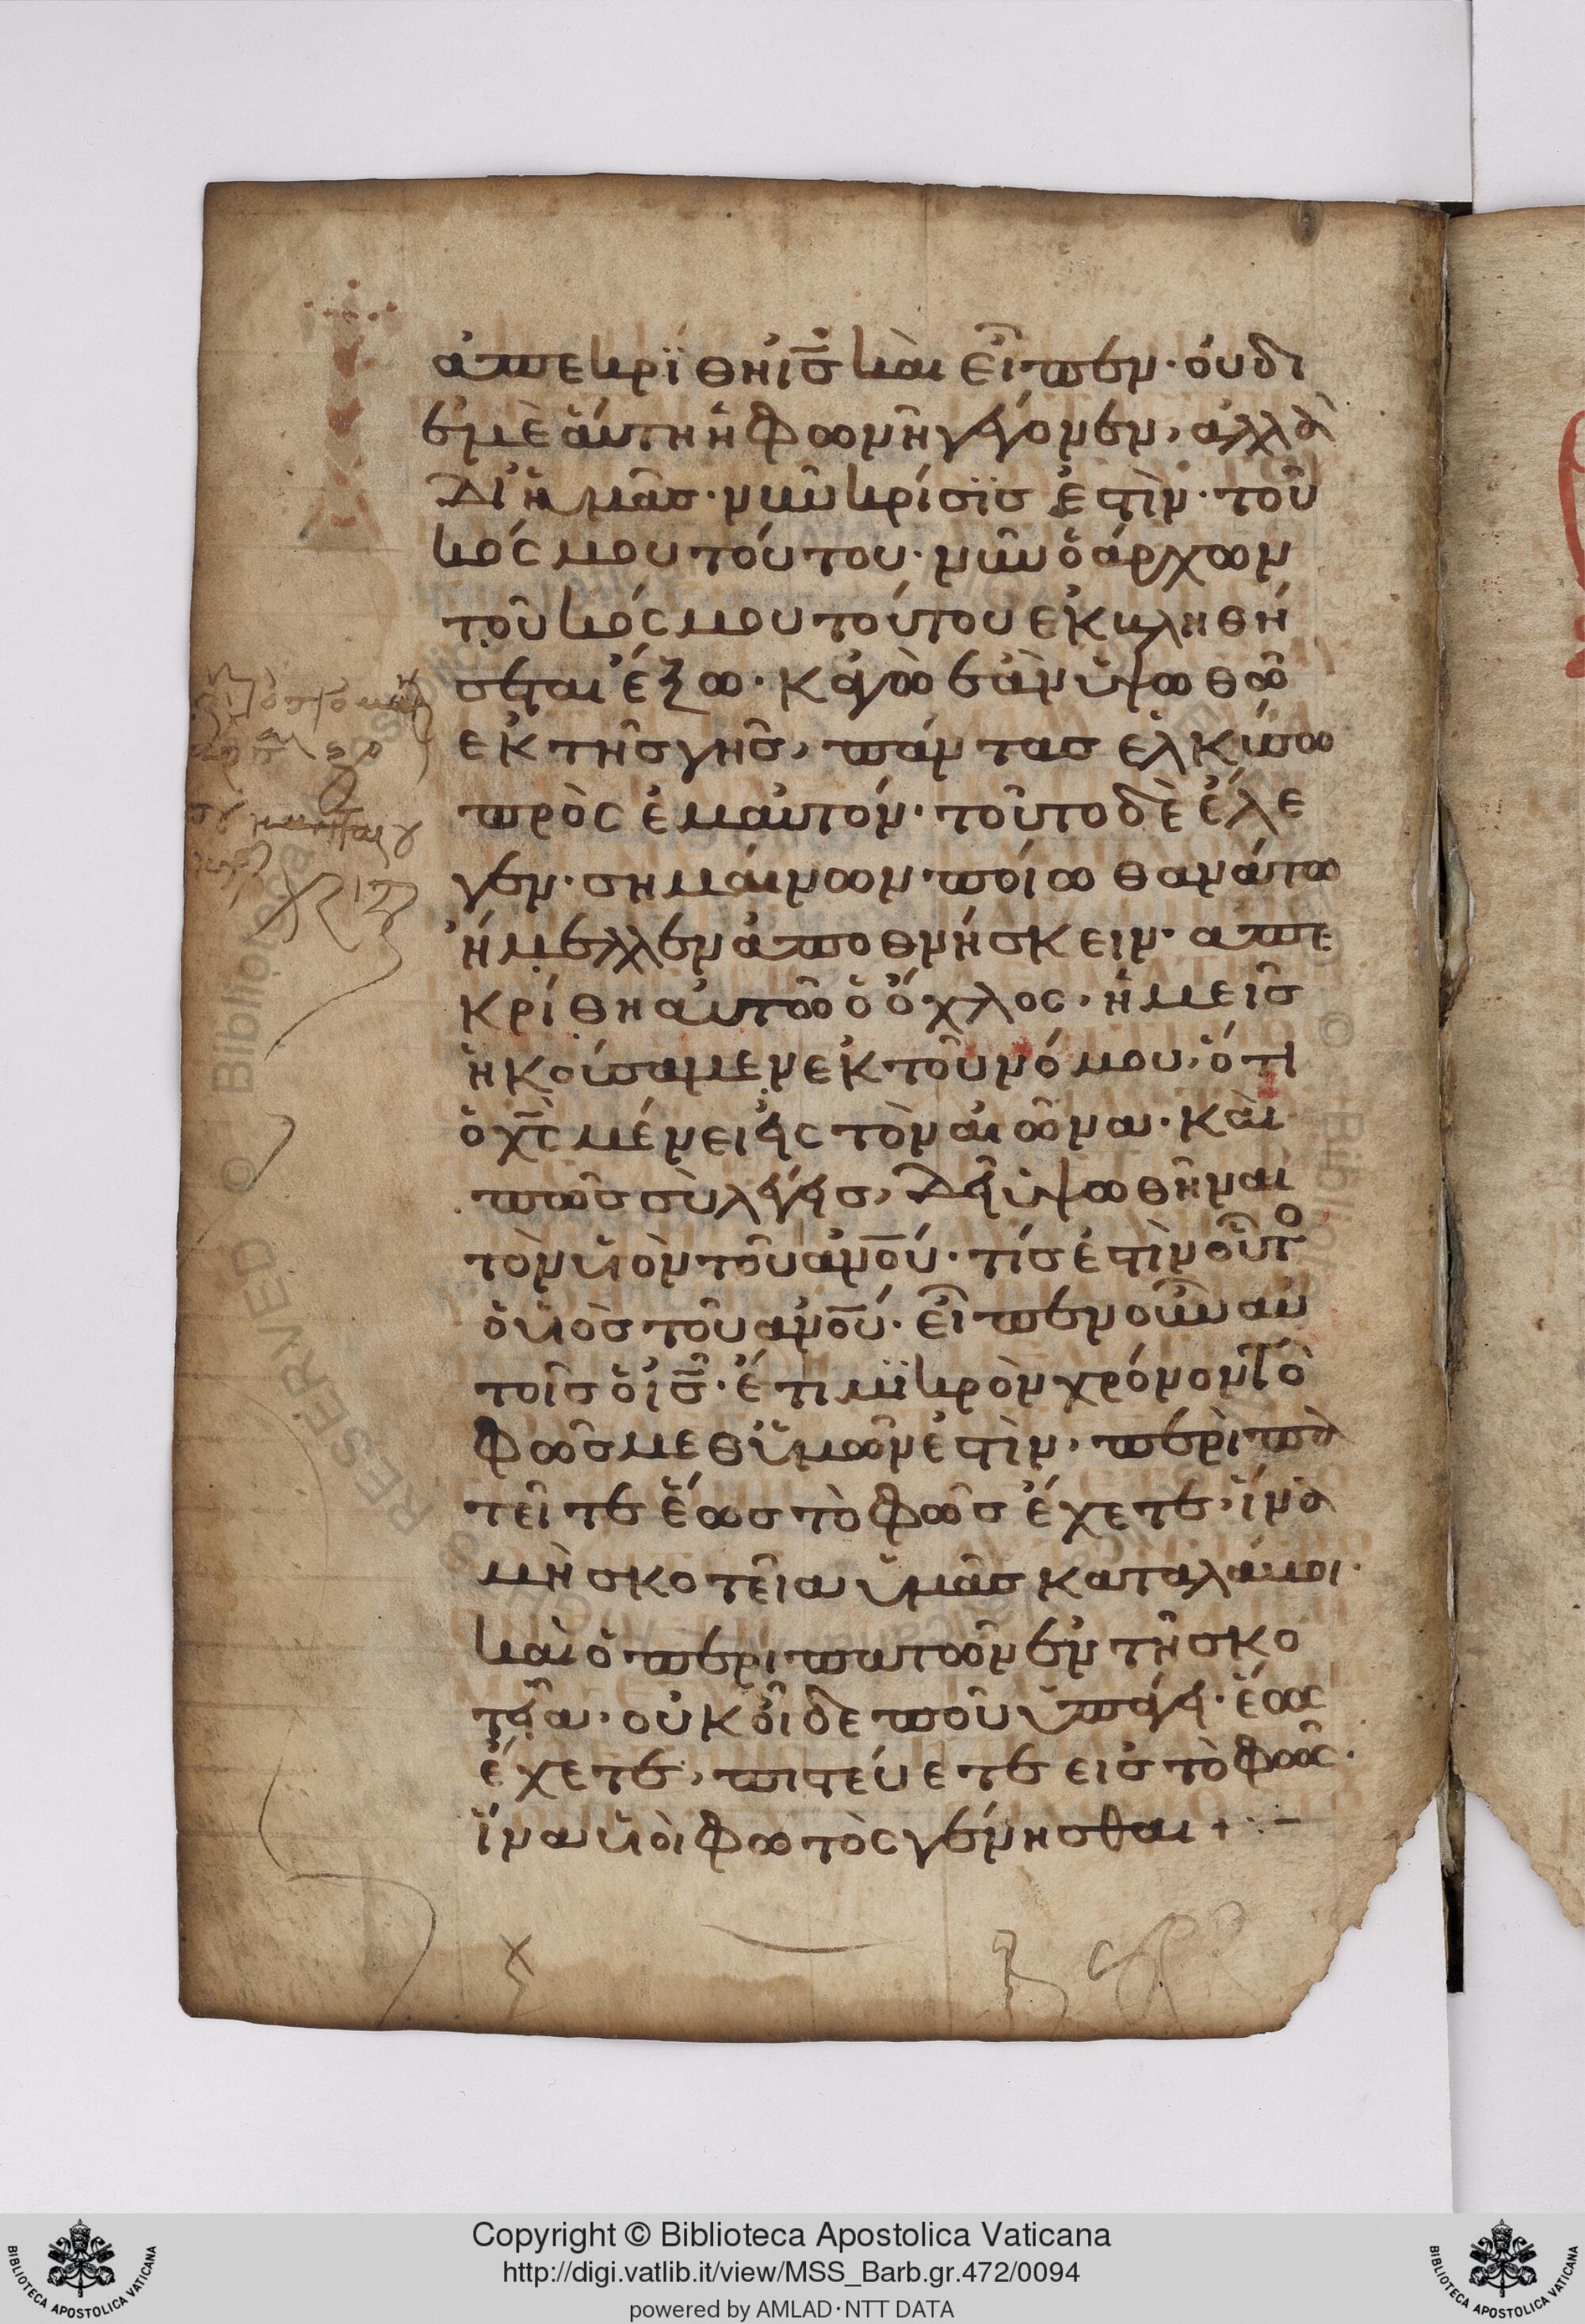 ἀπεκρϊθη ἰς̅ καὶ εἶπεν· ὀυδι
ἐμὲ ἅυτη ἡ φωνῆ γέγονεν, ἀλλὰ
δι ἡμᾶσ· νῦν κρίσϊσ ἐστὶν· τοῦ
κόσμου τόυτου· νῦν ὁ ἄρχων
τοῦ κόσμου τούτου ἐκκληθή
σεται ἔξω· κἀγὼ ἐὰν ὑψωθῶ
ἐκ τῆσ γῆσ, πάντασ ἑλκύσω
πρὸς ἐμαυτόν· τοῦτο δὲ ἔλε
γεν· σημάινων ποίω θανάτω
ἤμελλεν ἀποθνήσκειν· απε
κρίθη αυτῶ ὁ ὄχλος· ἡμεῖσ
ἠκούσαμεν ἐκ τοῦ νόμου, ὅτι
ὁ χ̅ς μένει εἰς τὸν αἰῶνα· καὶ
πῶσ σὺ λέγεισ, δεῖ ὑψωθῆναι
τὸν υἱὸν τοῦ ἀνο̅ύ· τίσ ἐστὶν οὗτο
ὁ υἱὸσ τοῦ ἀνο̅ύ· εἶπεν οὖν αὐ
τοῖσ ὁ ἰς̅· ἔτι μϊκρὸν χρόνον τὸ
φῶσ μεθ ὑμῶν ἐστὶν, περιπα
τεῖτε ἕωσ τὸ φῶσ ἔχετε, ἵνα
μὴ σκοτεῖα ὑμᾶσ καταλάμοι·
καὶ ὁ περιπατῶν ἐν τῆ σκο
τεῖα· οὐκ οἶδε ποῦ ὑπάγει· ἕως
ἔχετε, πιστεύετε εἰσ τὸ φῶς·
ἵνα υἱὸι φωτὸς γένησθαι +
Copyright © Biblioteca Apostolica Vaticana
http://digi.vatlib.it/view/MSS_Barb.gr.472/0094
powered by AMLAD·NTT DATA
BIBLIOTECA APOSTOLICA VATICANA
BIBLIOTECA APOSTOLICA VATICANA